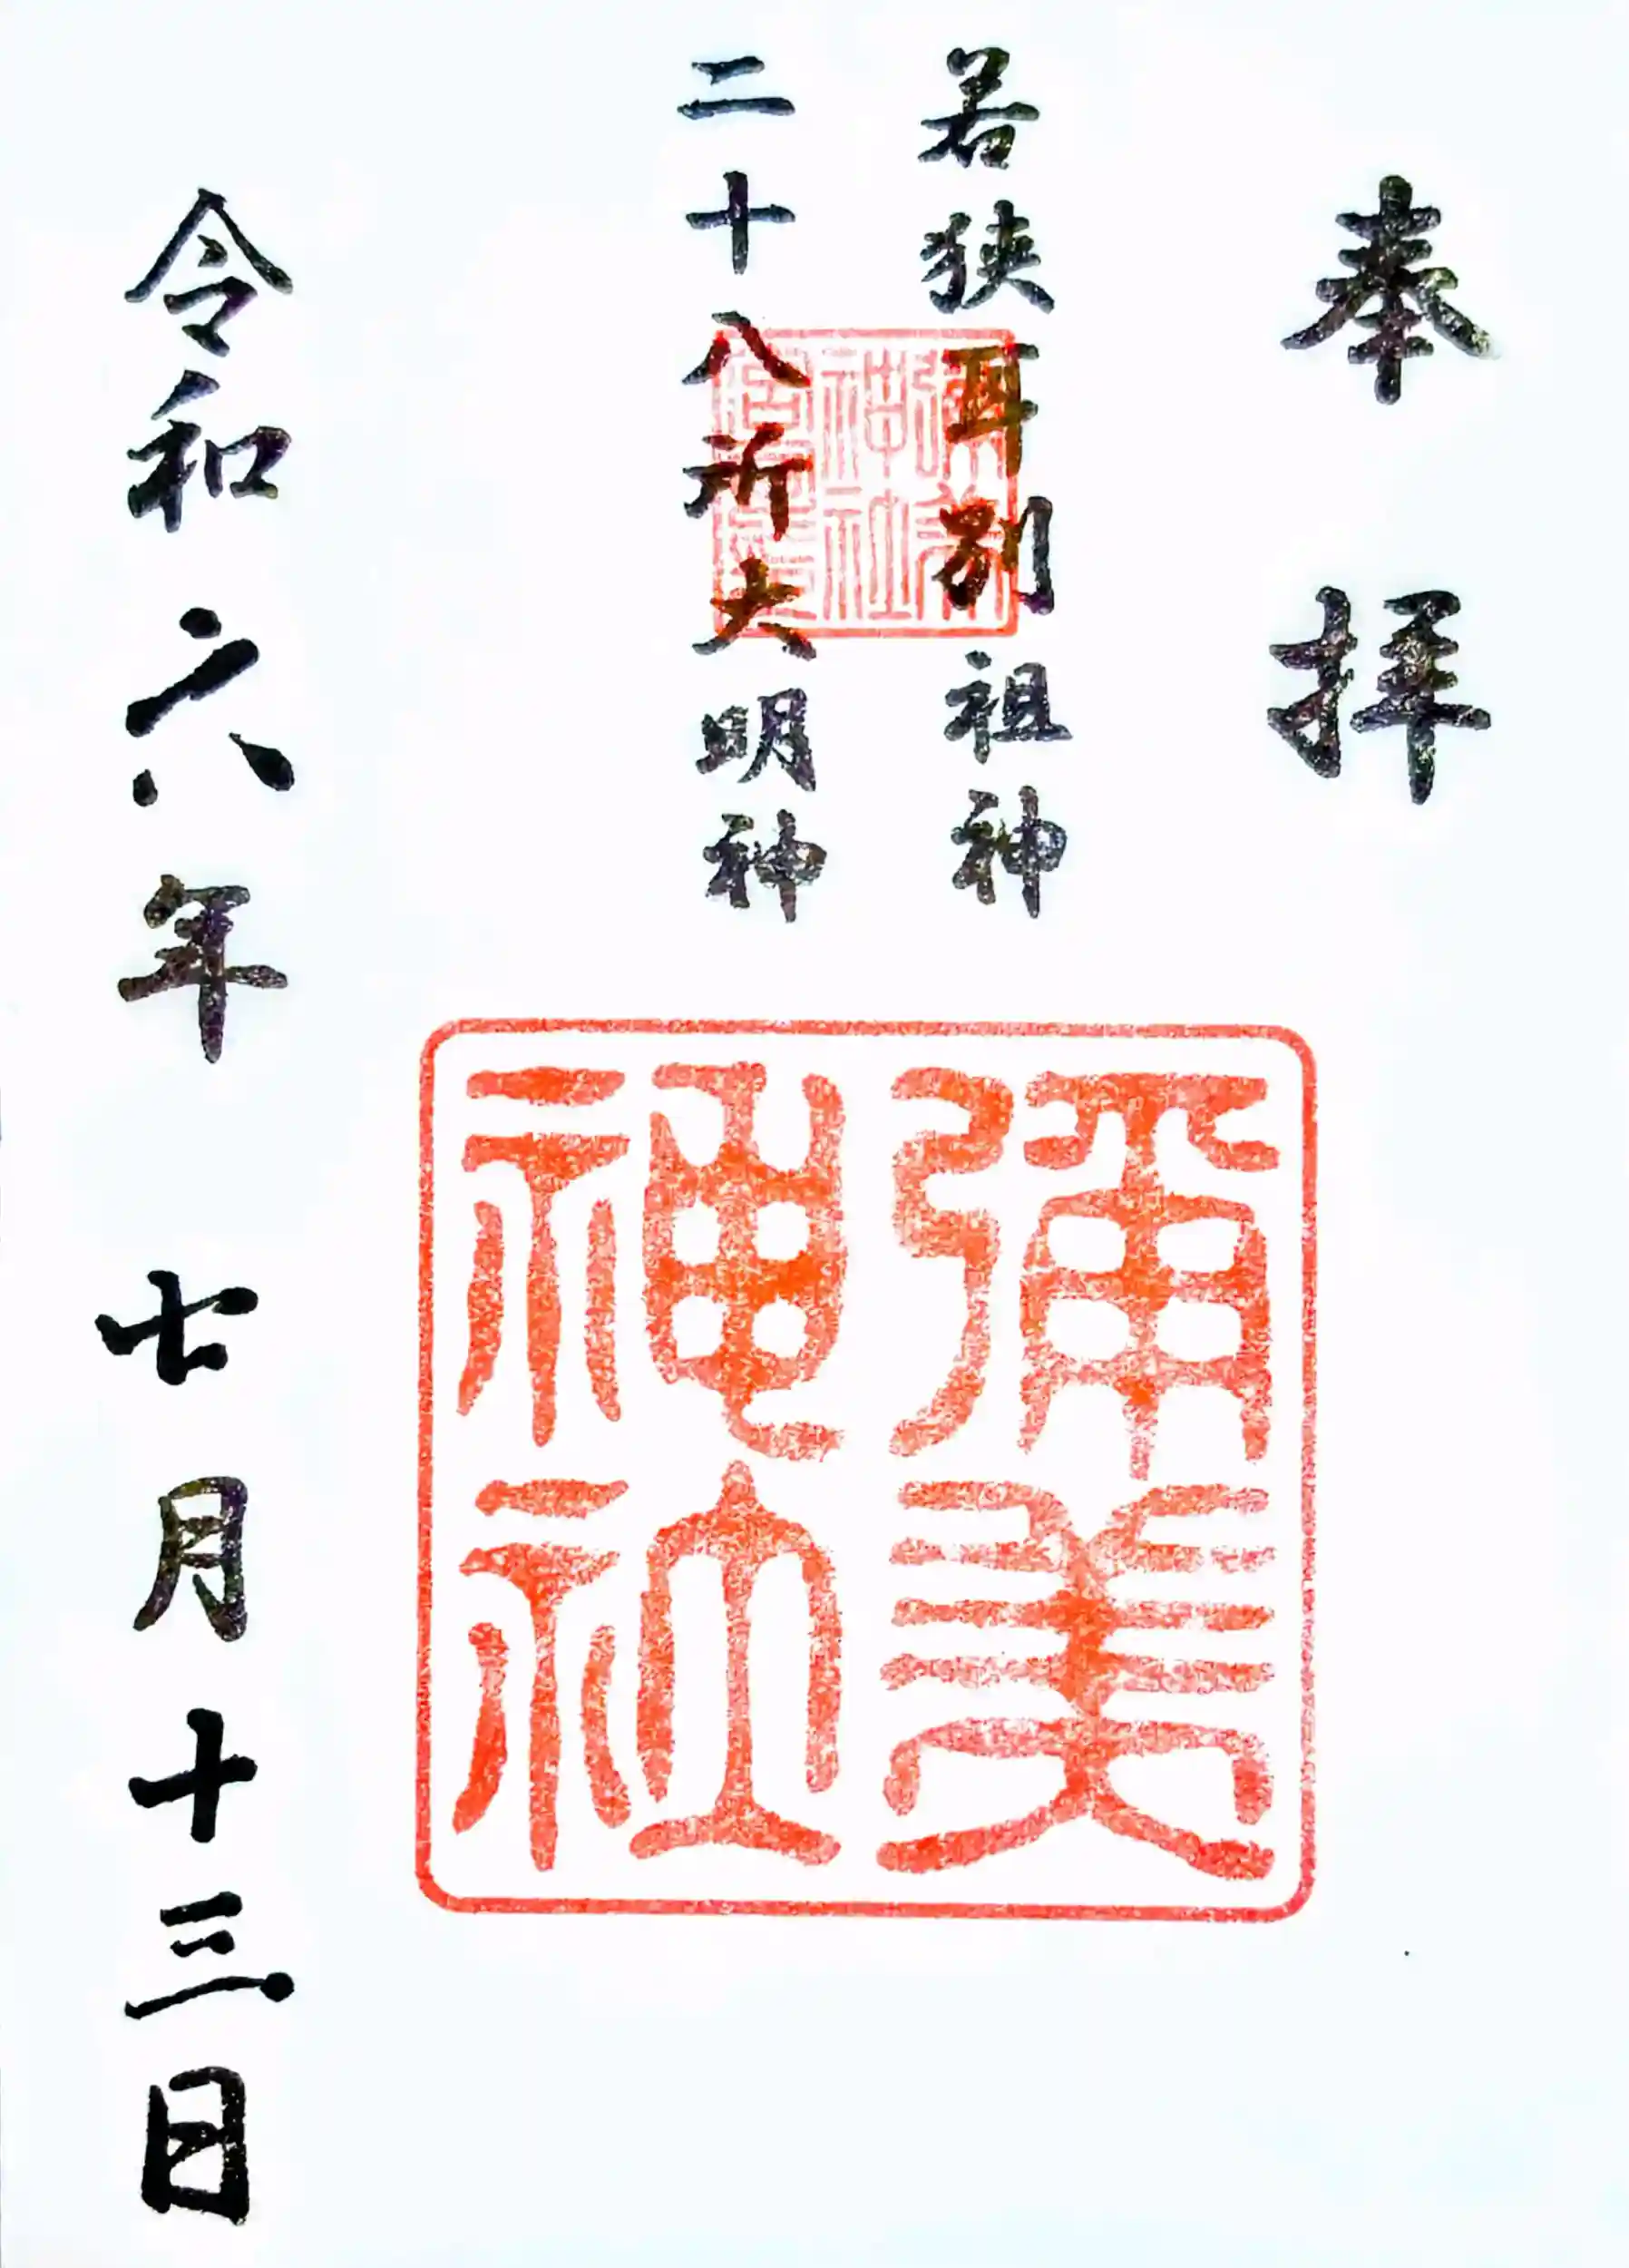 奉拝
若狭耳別祖神
二十八所大明神
彌美神社
令和六年七月十三日